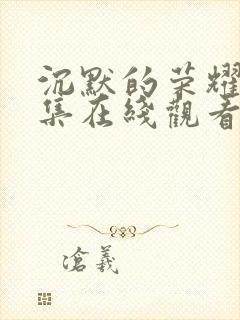 沉默的荣耀
集在綫觀看
滄義